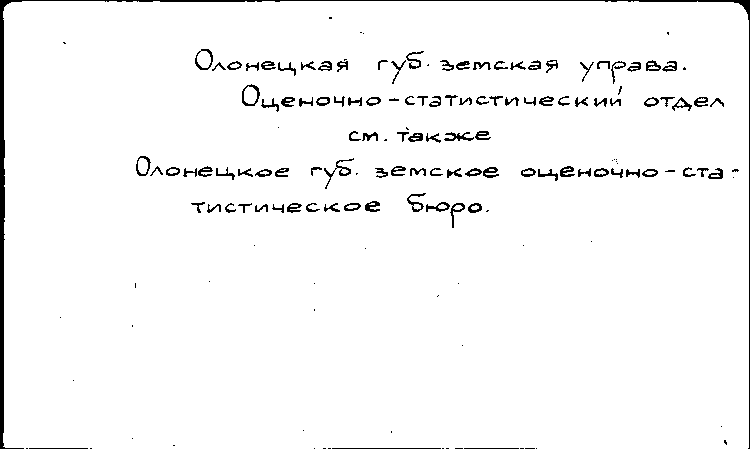 Олонецкая губ. земская управа.
Оценочно-статистический отдел
см. также
Олонецкое губ. земское оценочно-ста-
тистическое бюро.